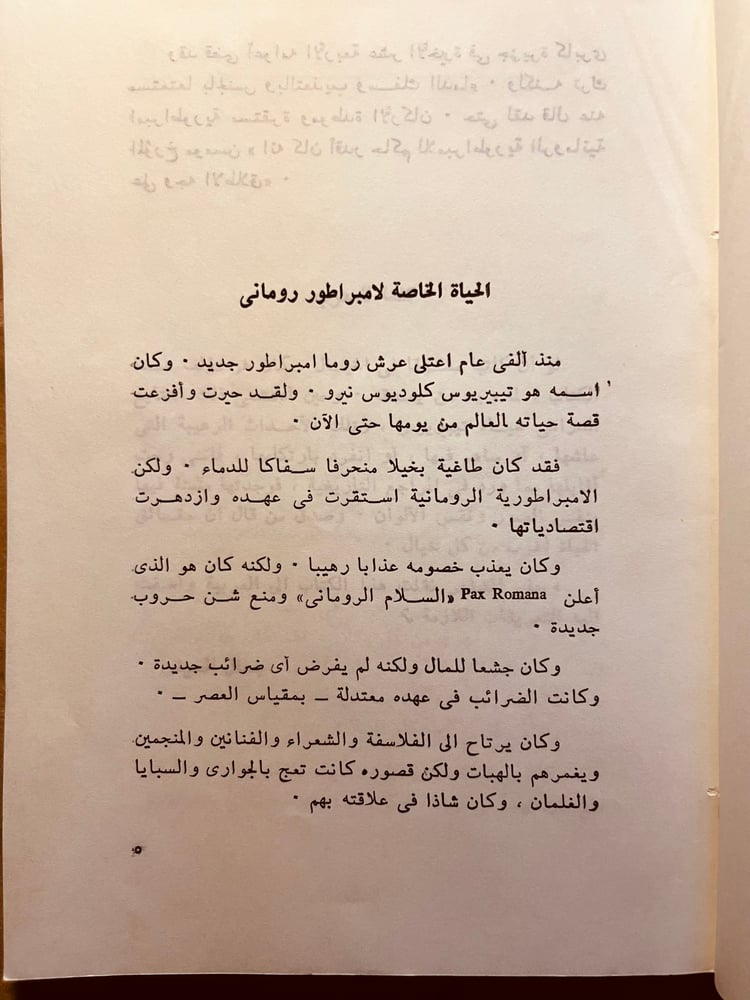 الحياة الخاصة لامبراطور رومانى
منذ ألفى عام اعتلى عرش روما امبراطور جديد ٠ وكان
اسـمه هو تيبيريوس كلوديوس نيرو ٠ ولقـد حيرت وأفزعت
قصة حياته العالم من يومها حتى الآن ٠
فقد كان طاغية بخيلا منحرفا سـفاكا للدماء ٠ ولكن
الامبراطورية الرومانية اسـتقرت فى عهـده وازدهـرت
اقتصادياتها ٠
وكان يعذب خصومه عذابا رهيبا ٠ ولكنه كان هو الذى
أعلن Pax Romana «السـلام الرومانى» ومنع شـن حـروب
جديدة ٠
وكان جشعا للمال ولكنه لم يفرض أى ضرائب جديدة ٠
وكانت الضرائب فى عهده معتدلة ــ بمقياس العصر ــ ٠
وكان يرتاح الى الفلاسفة والشعراء والفنانين والمنجمين
ويغمرهم بالهبات ولكن قصوره كانت تعج بالجوارى والسبايا
والغلمان ، وكان شاذا فى علاقته بهم ٠
٥